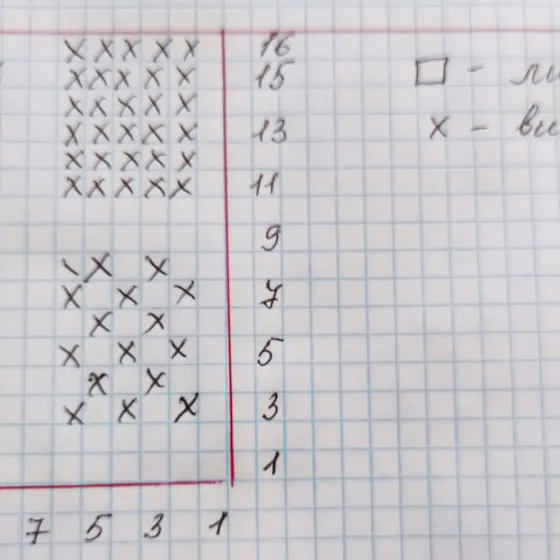 x x x x x 16
x x x x x 15 □ - ли
x x x x x
x x x x x 13 x - вы
x x x x x
x x x x x 11
9
\ x x
x x x 7
x x
x x x 5
x x
x x x 3
1
7 5 3 1